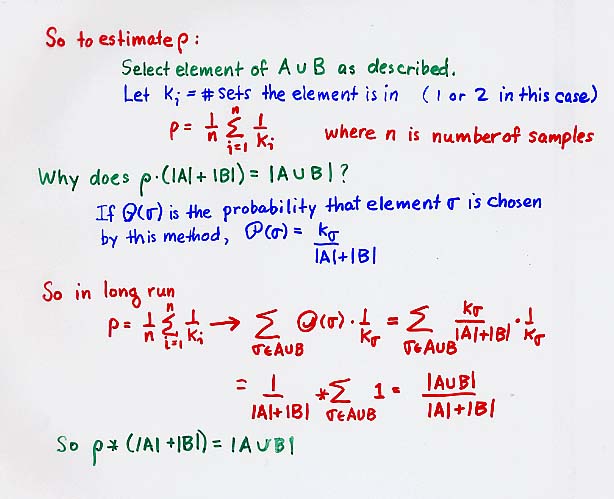 So to estimate ρ:
Select element of A ∪ B as described.
Let Kᵢ = # sets the element is in (1 or 2 in this case)
ρ = 1/n ∑ᵢ₌₁ⁿ 1/Kᵢ where n is number of samples
Why does ρ·(|A| + |B|) = |A ∪ B| ?
If P(σ) is the probability that element σ is chosen
by this method, P(σ) = kσ / |A|+|B|
So in long run
ρ = 1/n ∑ᵢ₌₁ⁿ 1/Kᵢ → ∑σ∈A∪B P(σ) · 1/kσ = ∑σ∈A∪B kσ/|A|+|B| · 1/kσ
= 1/|A|+|B| * ∑σ∈A∪B 1 = |A∪B| / |A|+|B|
So ρ * (|A| + |B|) = |A ∪ B|